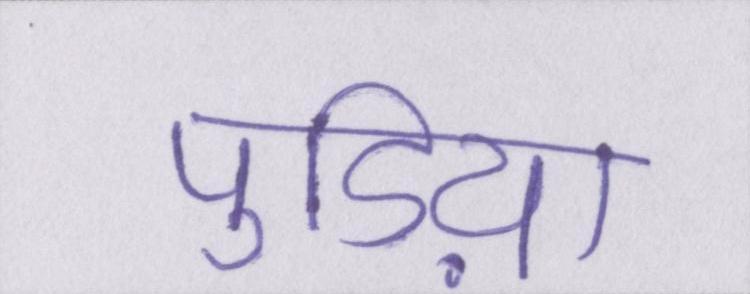 पुडिय़ा